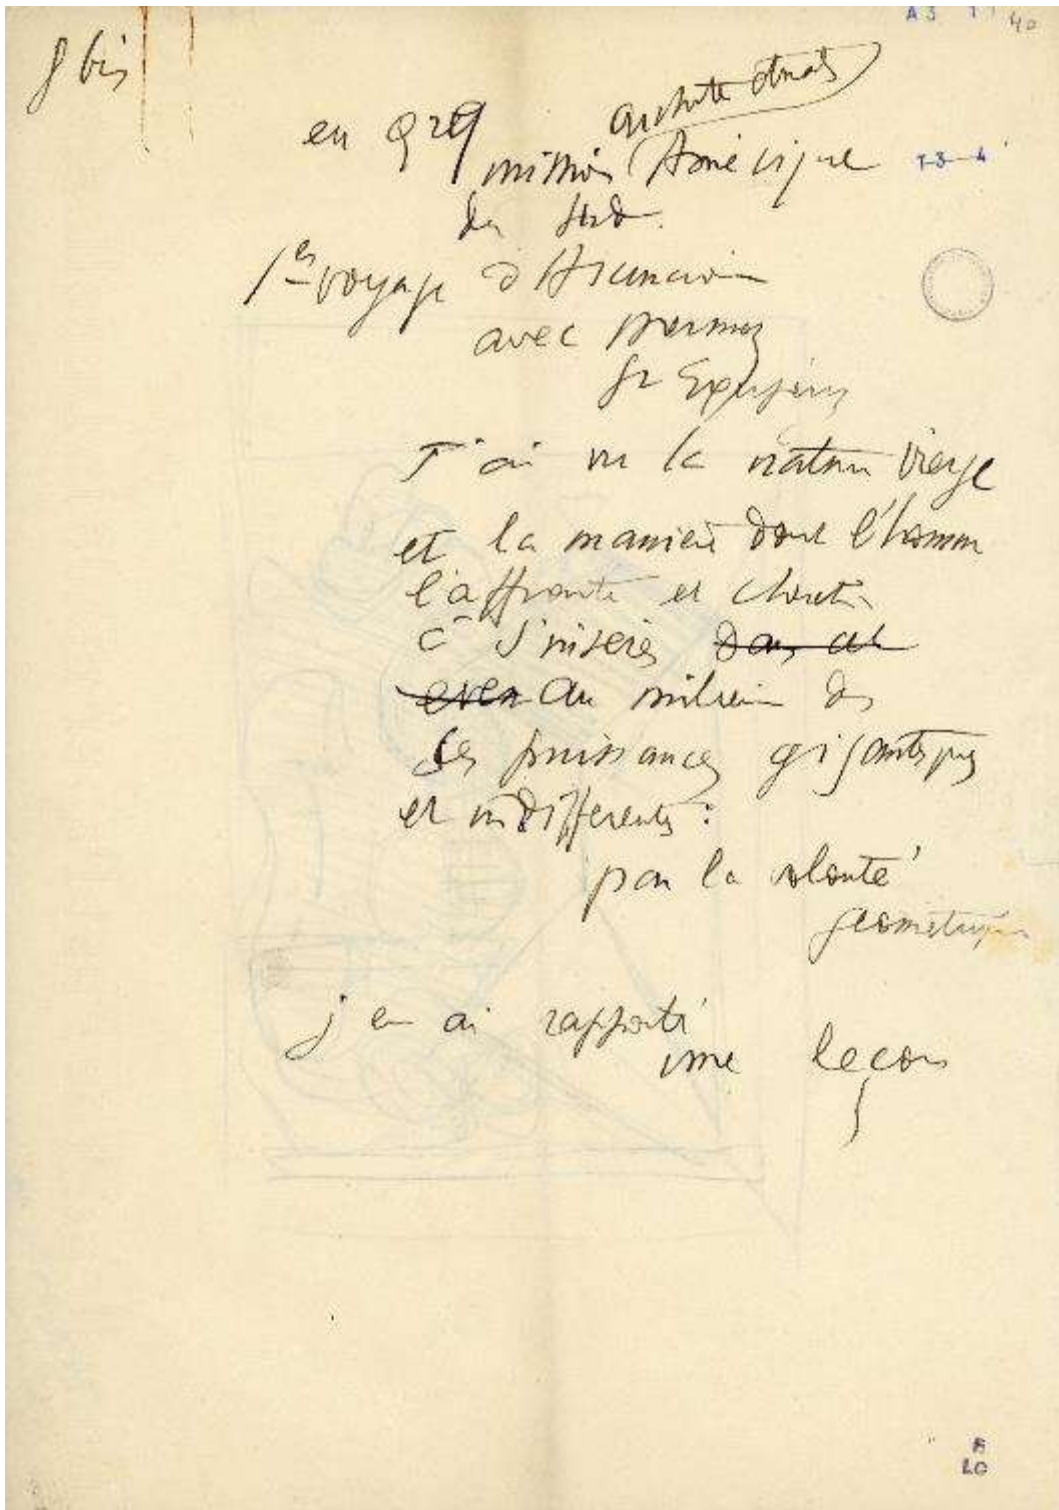 A3 11 40
8 bis
architectural
en 929
mission Amérique
du Sud.
1er voyage d'Asuncion
avec Mermoz
St Exupéry
J'ai vu la nature vierge
et la manière dont l'homme
l'affronte et cherche
à s'insérer dans ce
au milieu de
ces puissances gigantesques
et indifférentes :
par la volonté
géométrique
j'en ai rapporté
une leçon